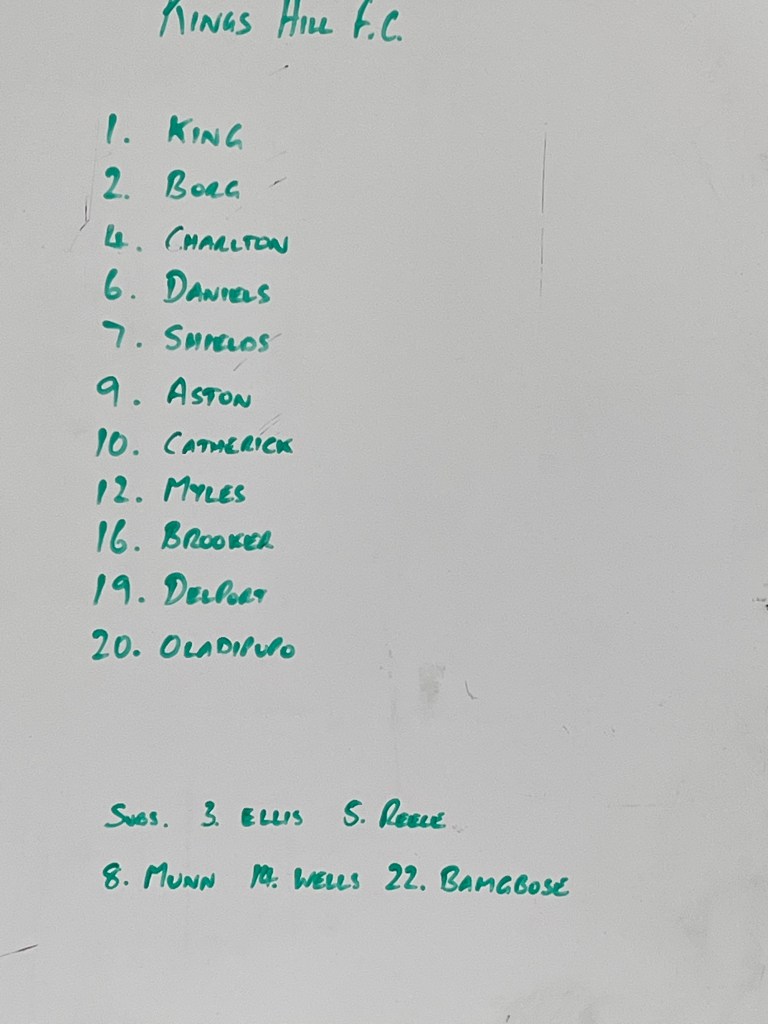 KINGS HILL F.C.
1. KING
2. BORG
4. CHARLTON
6. DANIELS
7. SHIELDS
9. ASTON
10. CATHERICK
12. MYLES
16. BROOKER
19. DELPORT
20. OLADIPUPO
SUBS. 3. ELLIS 5. REECE
8. MUNN 14. WELLS 22. BAMGBOSE